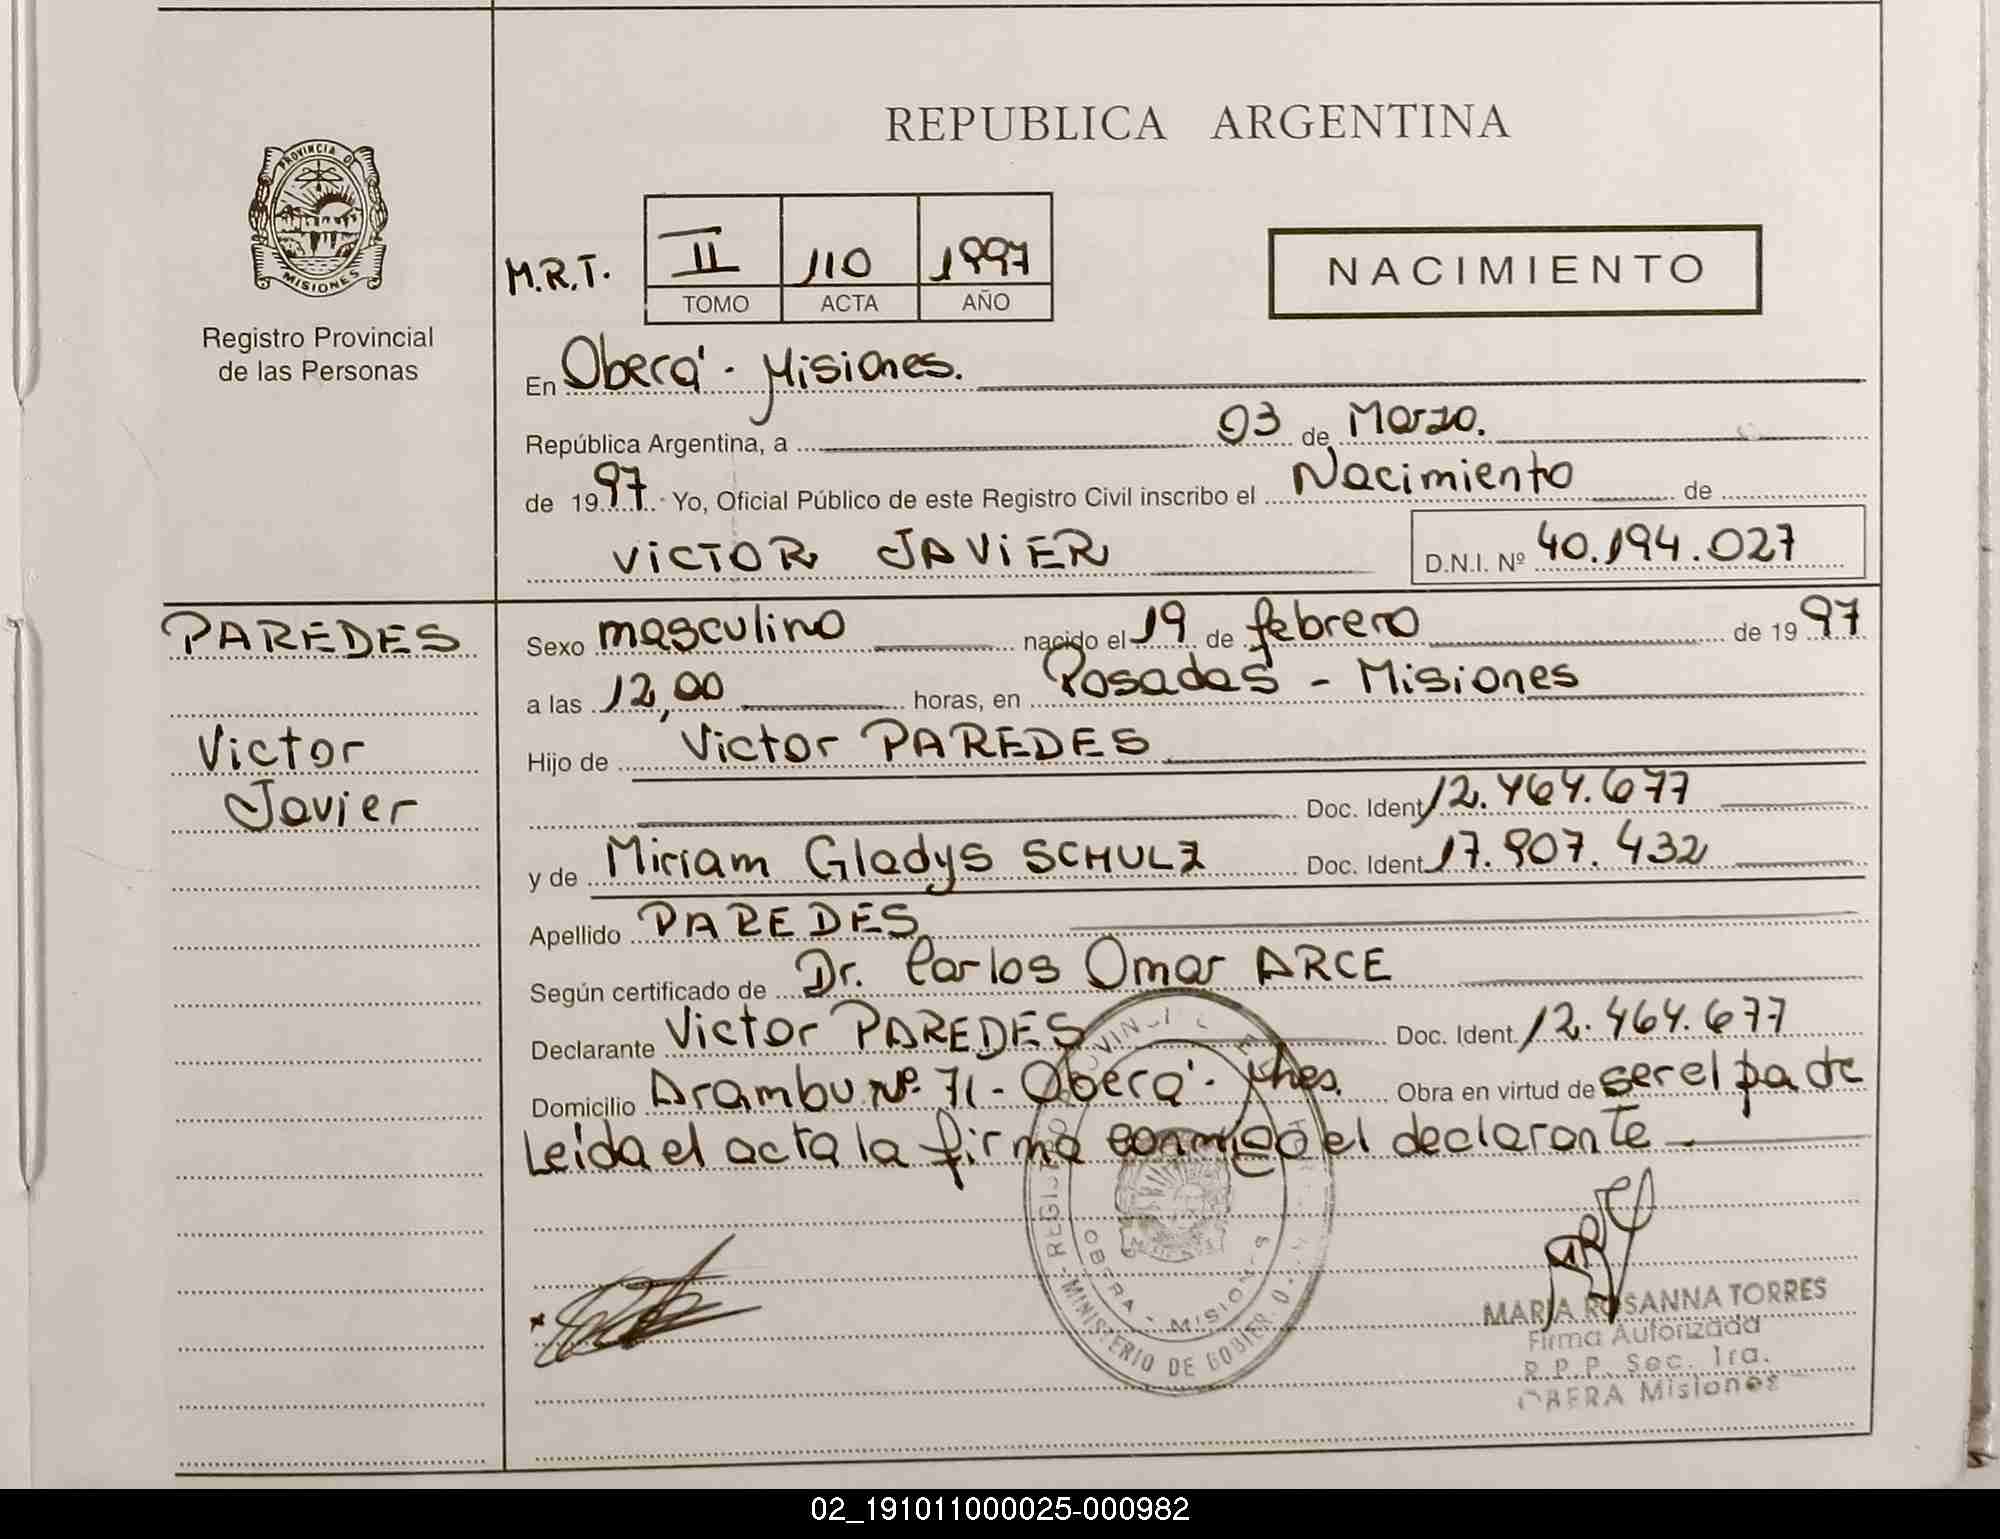 REPUBLICA ARGENTINA
PROVINCIA D
MISIONES
Registro Provincial
de las Personas
M.R.T.
II 110 1997
TOMO ACTA AÑO
NACIMIENTO
En Oberá - Misiones.
República Argentina, a 03 de Marzo.
de 1997 - Yo, Oficial Público de este Registro Civil inscribo el Nacimiento de
VICTOR JAVIER D.N.I. Nº 40.194.027
PAREDES
Victor
Javier
Sexo masculino nacido el 19 de febrero de 1997
a las 12,00 horas, en Posadas - Misiones
Hijo de Victor PAREDES
Doc. Ident 12.464.677
y de Miriam Gladys SCHULZ Doc. Ident 17.907.432
Apellido PAREDES
Según certificado de Dr. Carlos Omar ARCE
Declarante Victor PAREDES Doc. Ident. 12.464.677
Domicilio Arambu Nº 71 - Oberá - Mnes. Obra en virtud de ser el padre
Leida el acta la firma conmigo el declarante
OBERA - MISIONES
MINISTERIO DE GOBIER
MARIA ROSANNA TORRES
Firma Autorizada
R.P.P. Sec. 1ra.
OBERA Misiones
02_191011000025-000982